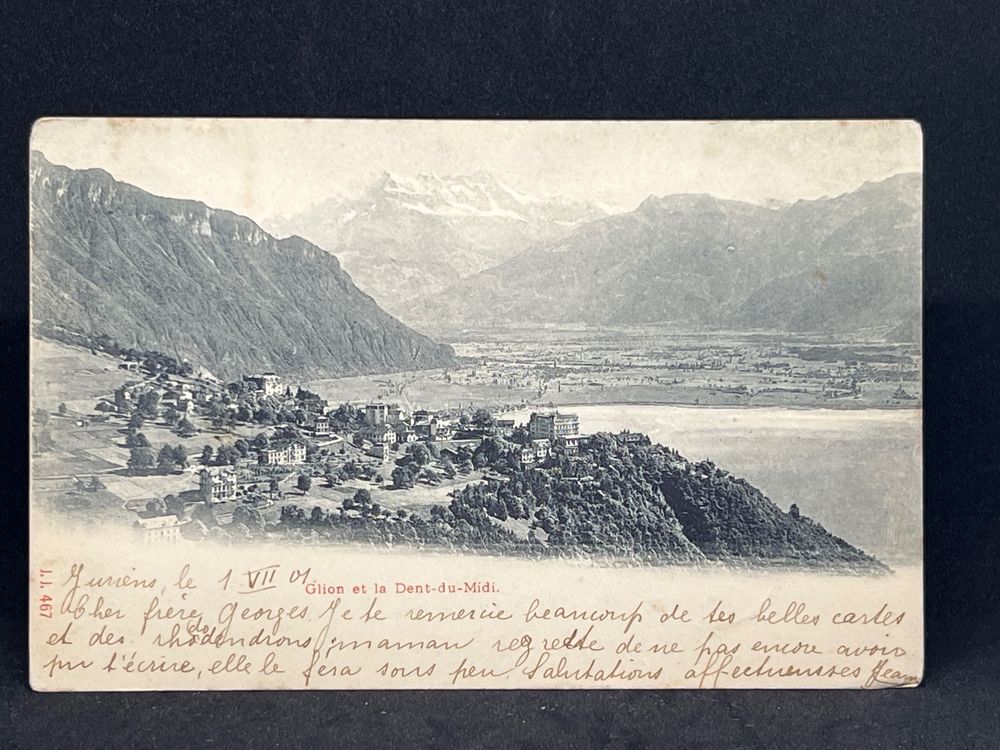 Juriens, le 1 VII 01
Glion et la Dent-du-Midi.
J.J. 467
Cher frère Georges. Je te remercie beaucoup de tes belles cartes
et des rhododendrons; maman regrette de ne pas encore avoir
pu t'écrire, elle le fera sous peu. Salutations affectueuses Jean